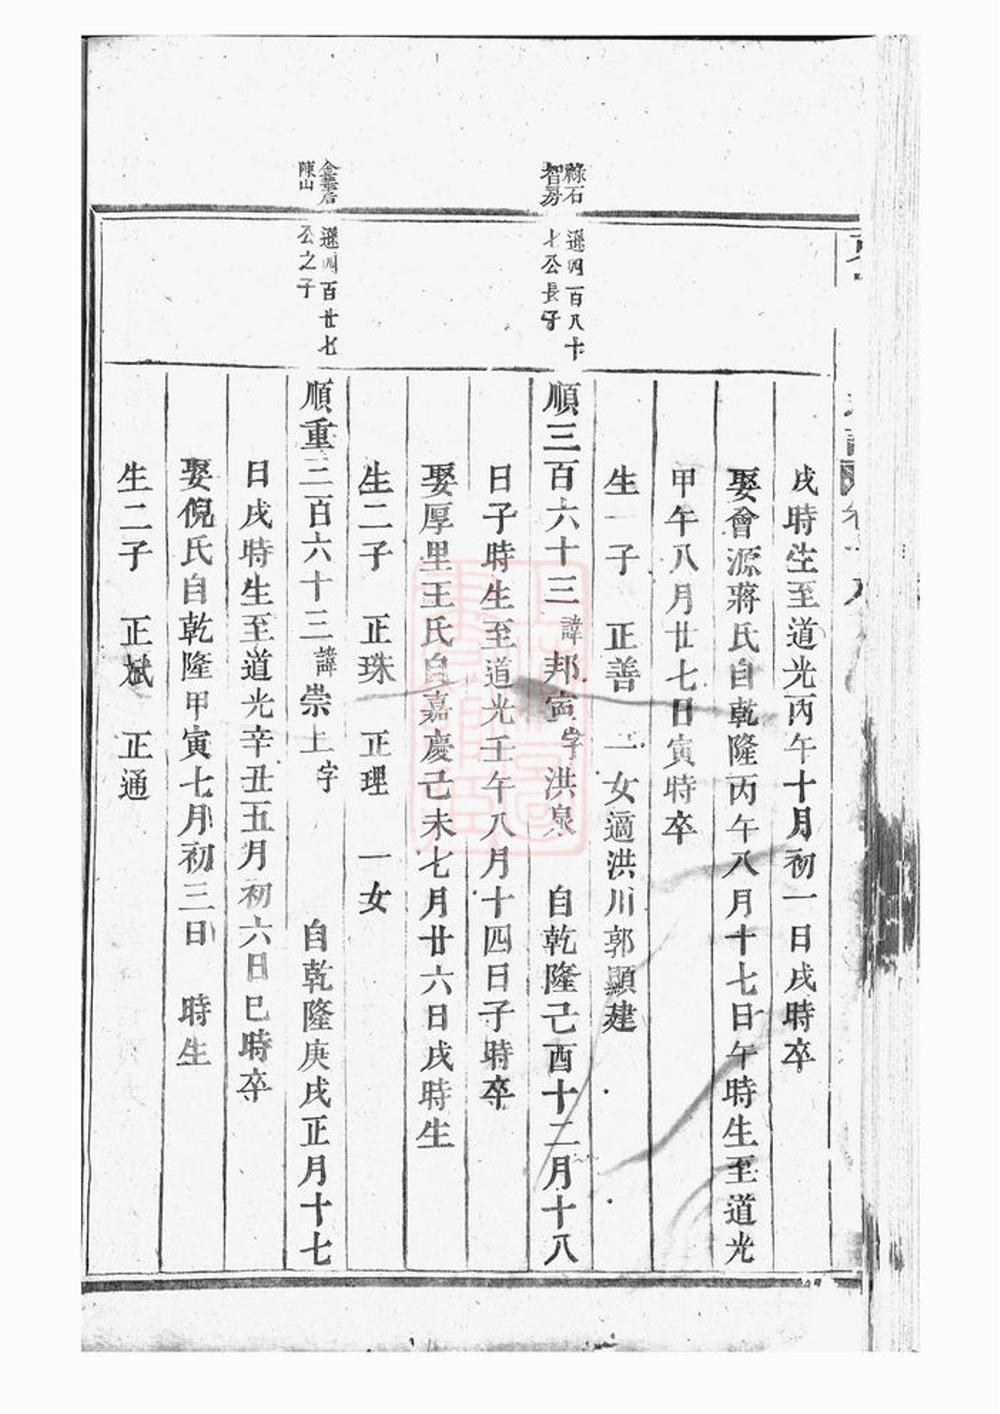 戌時生至道光丙午十月初一日戌時卒
娶會源蔣氏自乾隆丙午八月十七日午時生至道光
甲午八月廿七日寅時卒
生一子 正善 一女適洪川郭顯建
祿石
智房
遜四百八十
七公長子
順三百六十三諱邦寅字洪泉 自乾隆己酉十二月十八
日子時生至道光壬午八月十四日子時卒
娶厚里王氏自嘉慶己未七月廿六日戌時生
生二子 正珠 正理 一女
陳山
遜四百廿七
公之子
順重三百六十三諱崇上字 自乾隆庚戌正月十七
日戌時生至道光辛丑五月初六日巳時卒
娶倪氏自乾隆甲寅七月初三日 時生
生二子 正斌 正通